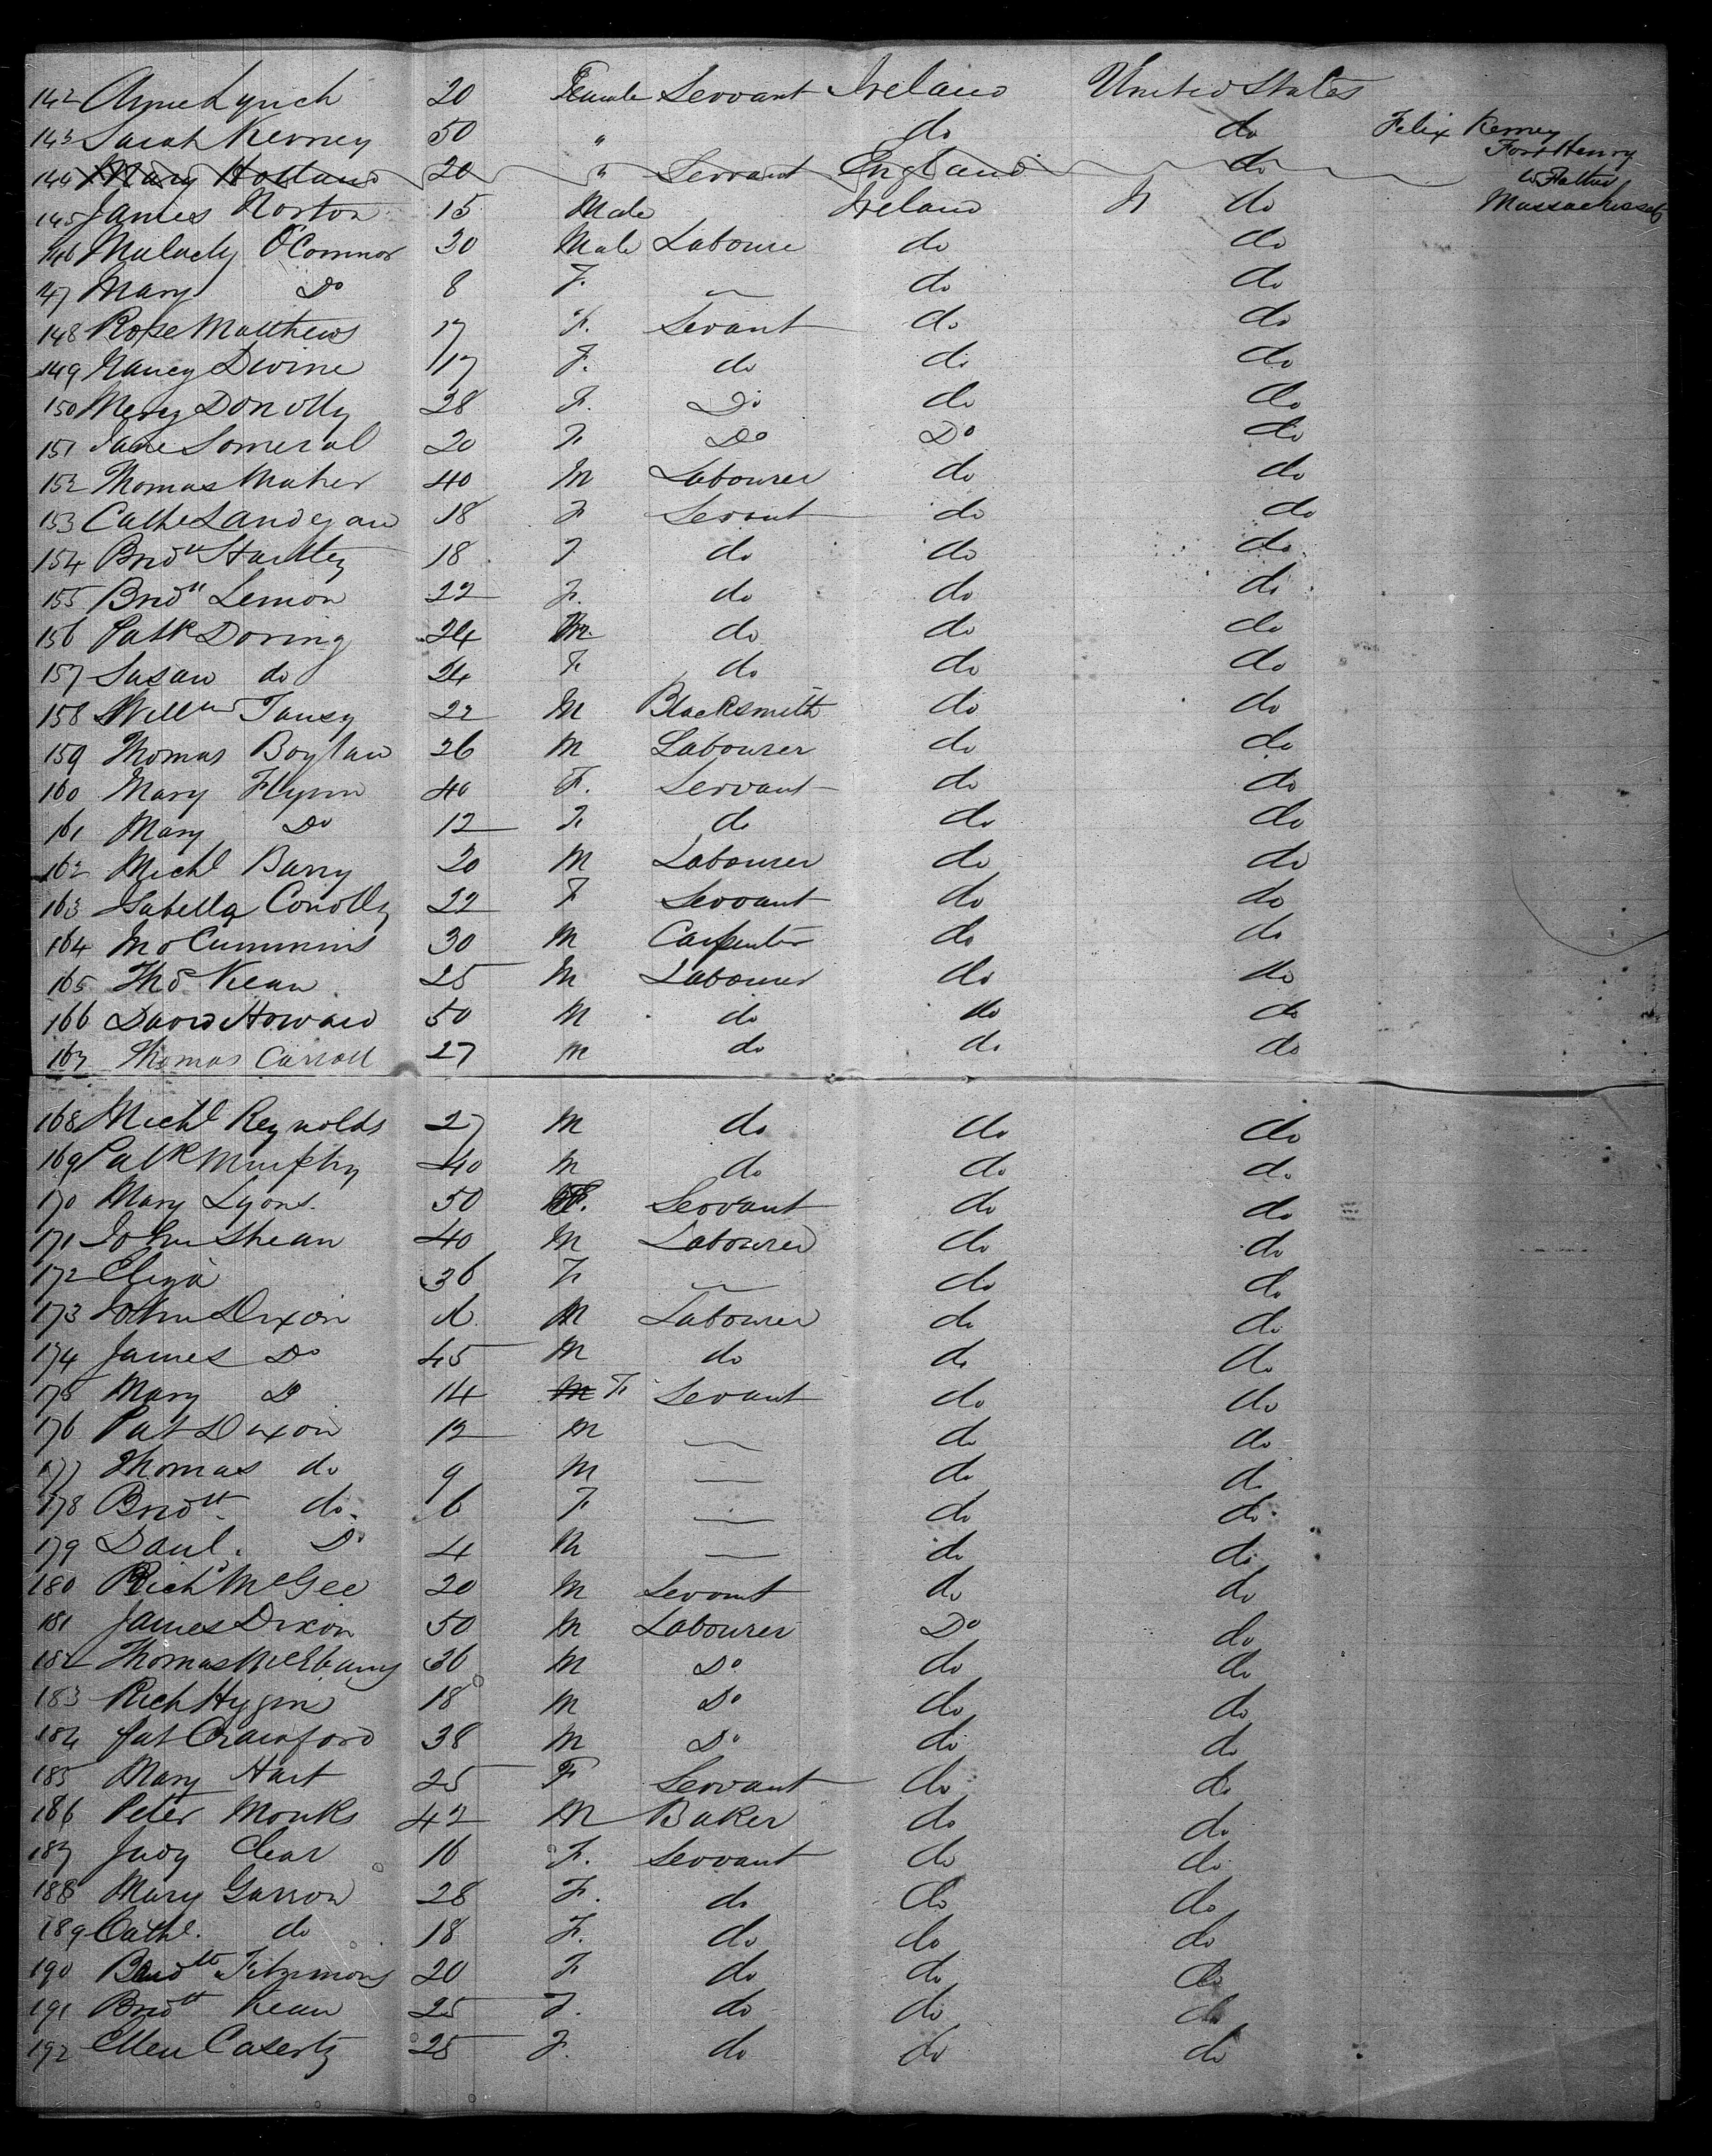 142 Anne Lynch 20 Female Servant Ireland United States
143 Sarah Kerney 50 " do do Felix Kerney
Fort Henry
144 Mary Holland 20 " Servant England do
Massachussets
145 James Norton 15 Male Ireland do
146 Malachy O'Connor 30 Male Laboure do do
147 Mary Do 8 F. — do do
148 Rose Matthews 17 F. Sevant do do
149 Nancy Divine 17 F. do do do
150 Mary Donolly 28 F. Do do do
151 Jane Someral 20 F. Do Do do
152 Thomas Maher 40 M Labourer do do
153 Cathe Landegan 18 F Sevant do do
154 Bridtt Hartley 18 F do do do
155 Bridtt Lemon 22 F. do do do
156 Patk Doring 24 M. do do do
157 Susan do 24 F. do do do
158 Willm Tansy 22 M Blacksmith do do
159 Thomas Boylan 26 M Labourer do do
160 Mary Flynn 40 F. Servant do do
161 Mary Do 12 F. do do do
162 Michl Barry 20 M Labourer do do
163 Isabella Conolly 22 F Servant do do
164 Jno Cummins 30 M Carpenter do do
165 Thos Kean 25 M Labourer do do
166 David Howard 50 M do do do
167 Thomas Carroll 27 M do do do
168 Michl Reynolds 27 M do do do
169 Patk Murphy 40 M do do do
170 Mary Lyons. 50 F. Servant do do
171 John Shean 40 M Labourer do do
172 Eliza 36 F. — do do
173 John Dixon M Labourer do do
174 James Do 45 M do do do
175 Mary Do 14 M F. Sevant do do
176 Pat Dixon 12 M — do do
177 Thomas do 9 M — do do
178 Bridtt. do. 6 F — do do
179 Danl. Do 4 M — do do
180 Richd McGee 20 M Sevant do do
181 James Dixon 50 M Labourer Do do
182 Thomas 36 M Do do do
183 Rich Hygins 18 M Do do do
184 Pat Crawford 38 M Do do do
185 Mary Hart 25 F Servant do do
186 Peter Monks 42 M Baker do do
187 Judy Clear 16 F. Servant do do
188 Mary Garron 28 F. do do do
189 Cathe. do 18 F. do do do
190 Bridtt Fitzimons 20 F do do do
191 Bridtt Kean 25 F. do do do
192 Ellen Caserty 25 F. do do do